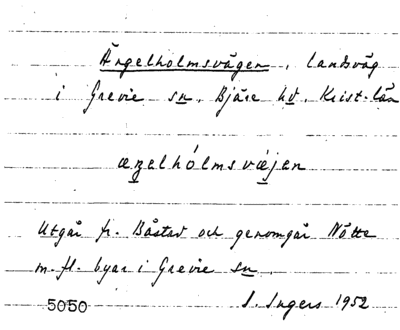 Ängelholmsvägen, landsväg
i Grevie sn, Bjäre hd, Krist. län
æŋelhólmsvæjen
Utgår fr. Båstad och genomgår Nötte
m.fl. byar i Grevie sn.
5050 I. Ingers 1952